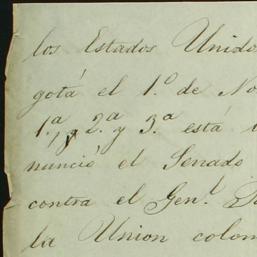 los Estados Unido
gotá el 1.º de No
1.ª, 2.ª y 3.ª está
nunció el Senado
contra el Gen.l
la Union colom